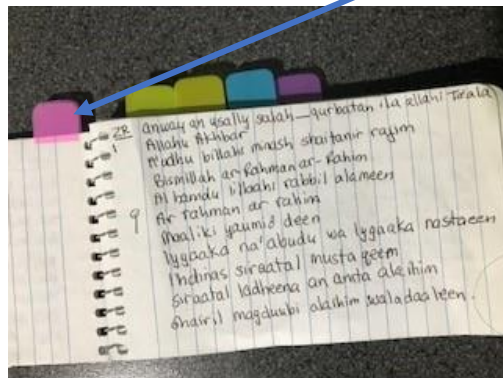 2R anway an usally salah_qurbatan ila allahi Ta'ala
1 Allahu Akhbar
A'udhu billahi minash shaitanir rajim
Bismillah ar-Rahman ar-Rahim
Al hamidu lillaahi rabbil alameen
9 Ar rahman ar rahim
Maaliki yaumid deen
Iyyaaka na'abudu wa Iygaaka nastaeen
Ihdinas siraatal mustaqeem
Siraatal ladheena an amta alaihim
Ghairil magduubi alaihim waladaaleen.